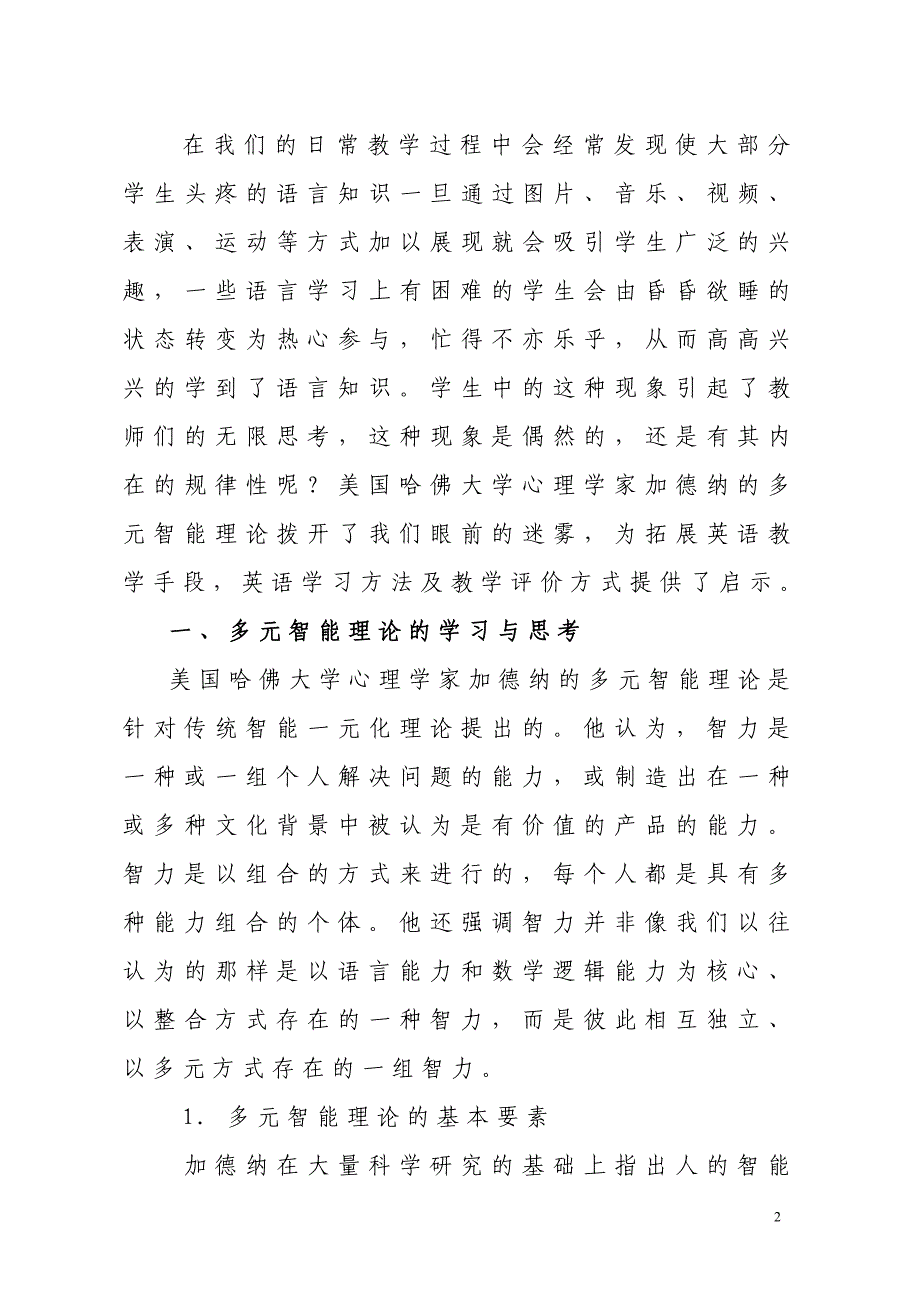 在我们的日常教学过程中会经常发现使大部分
学生头疼的语言知识一旦通过图片、音乐、视频、
表演、运动等方式加以展现就会吸引学生广泛的兴
趣，一些语言学习上有困难的学生会由昏昏欲睡的
状态转变为热心参与，忙得不亦乐乎，从而高高兴
兴的学到了语言知识。学生中的这种现象引起了教
师们的无限思考，这种现象是偶然的，还是有其内
在的规律性呢？美国哈佛大学心理学家加德纳的多
元智能理论拨开了我们眼前的迷雾，为拓展英语教
学手段，英语学习方法及教学评价方式提供了启示。
一、多元智能理论的学习与思考
美国哈佛大学心理学家加德纳的多元智能理论是
针对传统智能一元化理论提出的。他认为，智力是
一种或一组个人解决问题的能力，或制造出在一种
或多种文化背景中被认为是有价值的产品的能力。
智力是以组合的方式来进行的，每个人都是具有多
种能力组合的个体。他还强调智力并非像我们以往
认为的那样是以语言能力和数学逻辑能力为核心、
以整合方式存在的一种智力，而是彼此相互独立、
以多元方式存在的一组智力。
1. 多元智能理论的基本要素
加德纳在大量科学研究的基础上指出人的智能
2